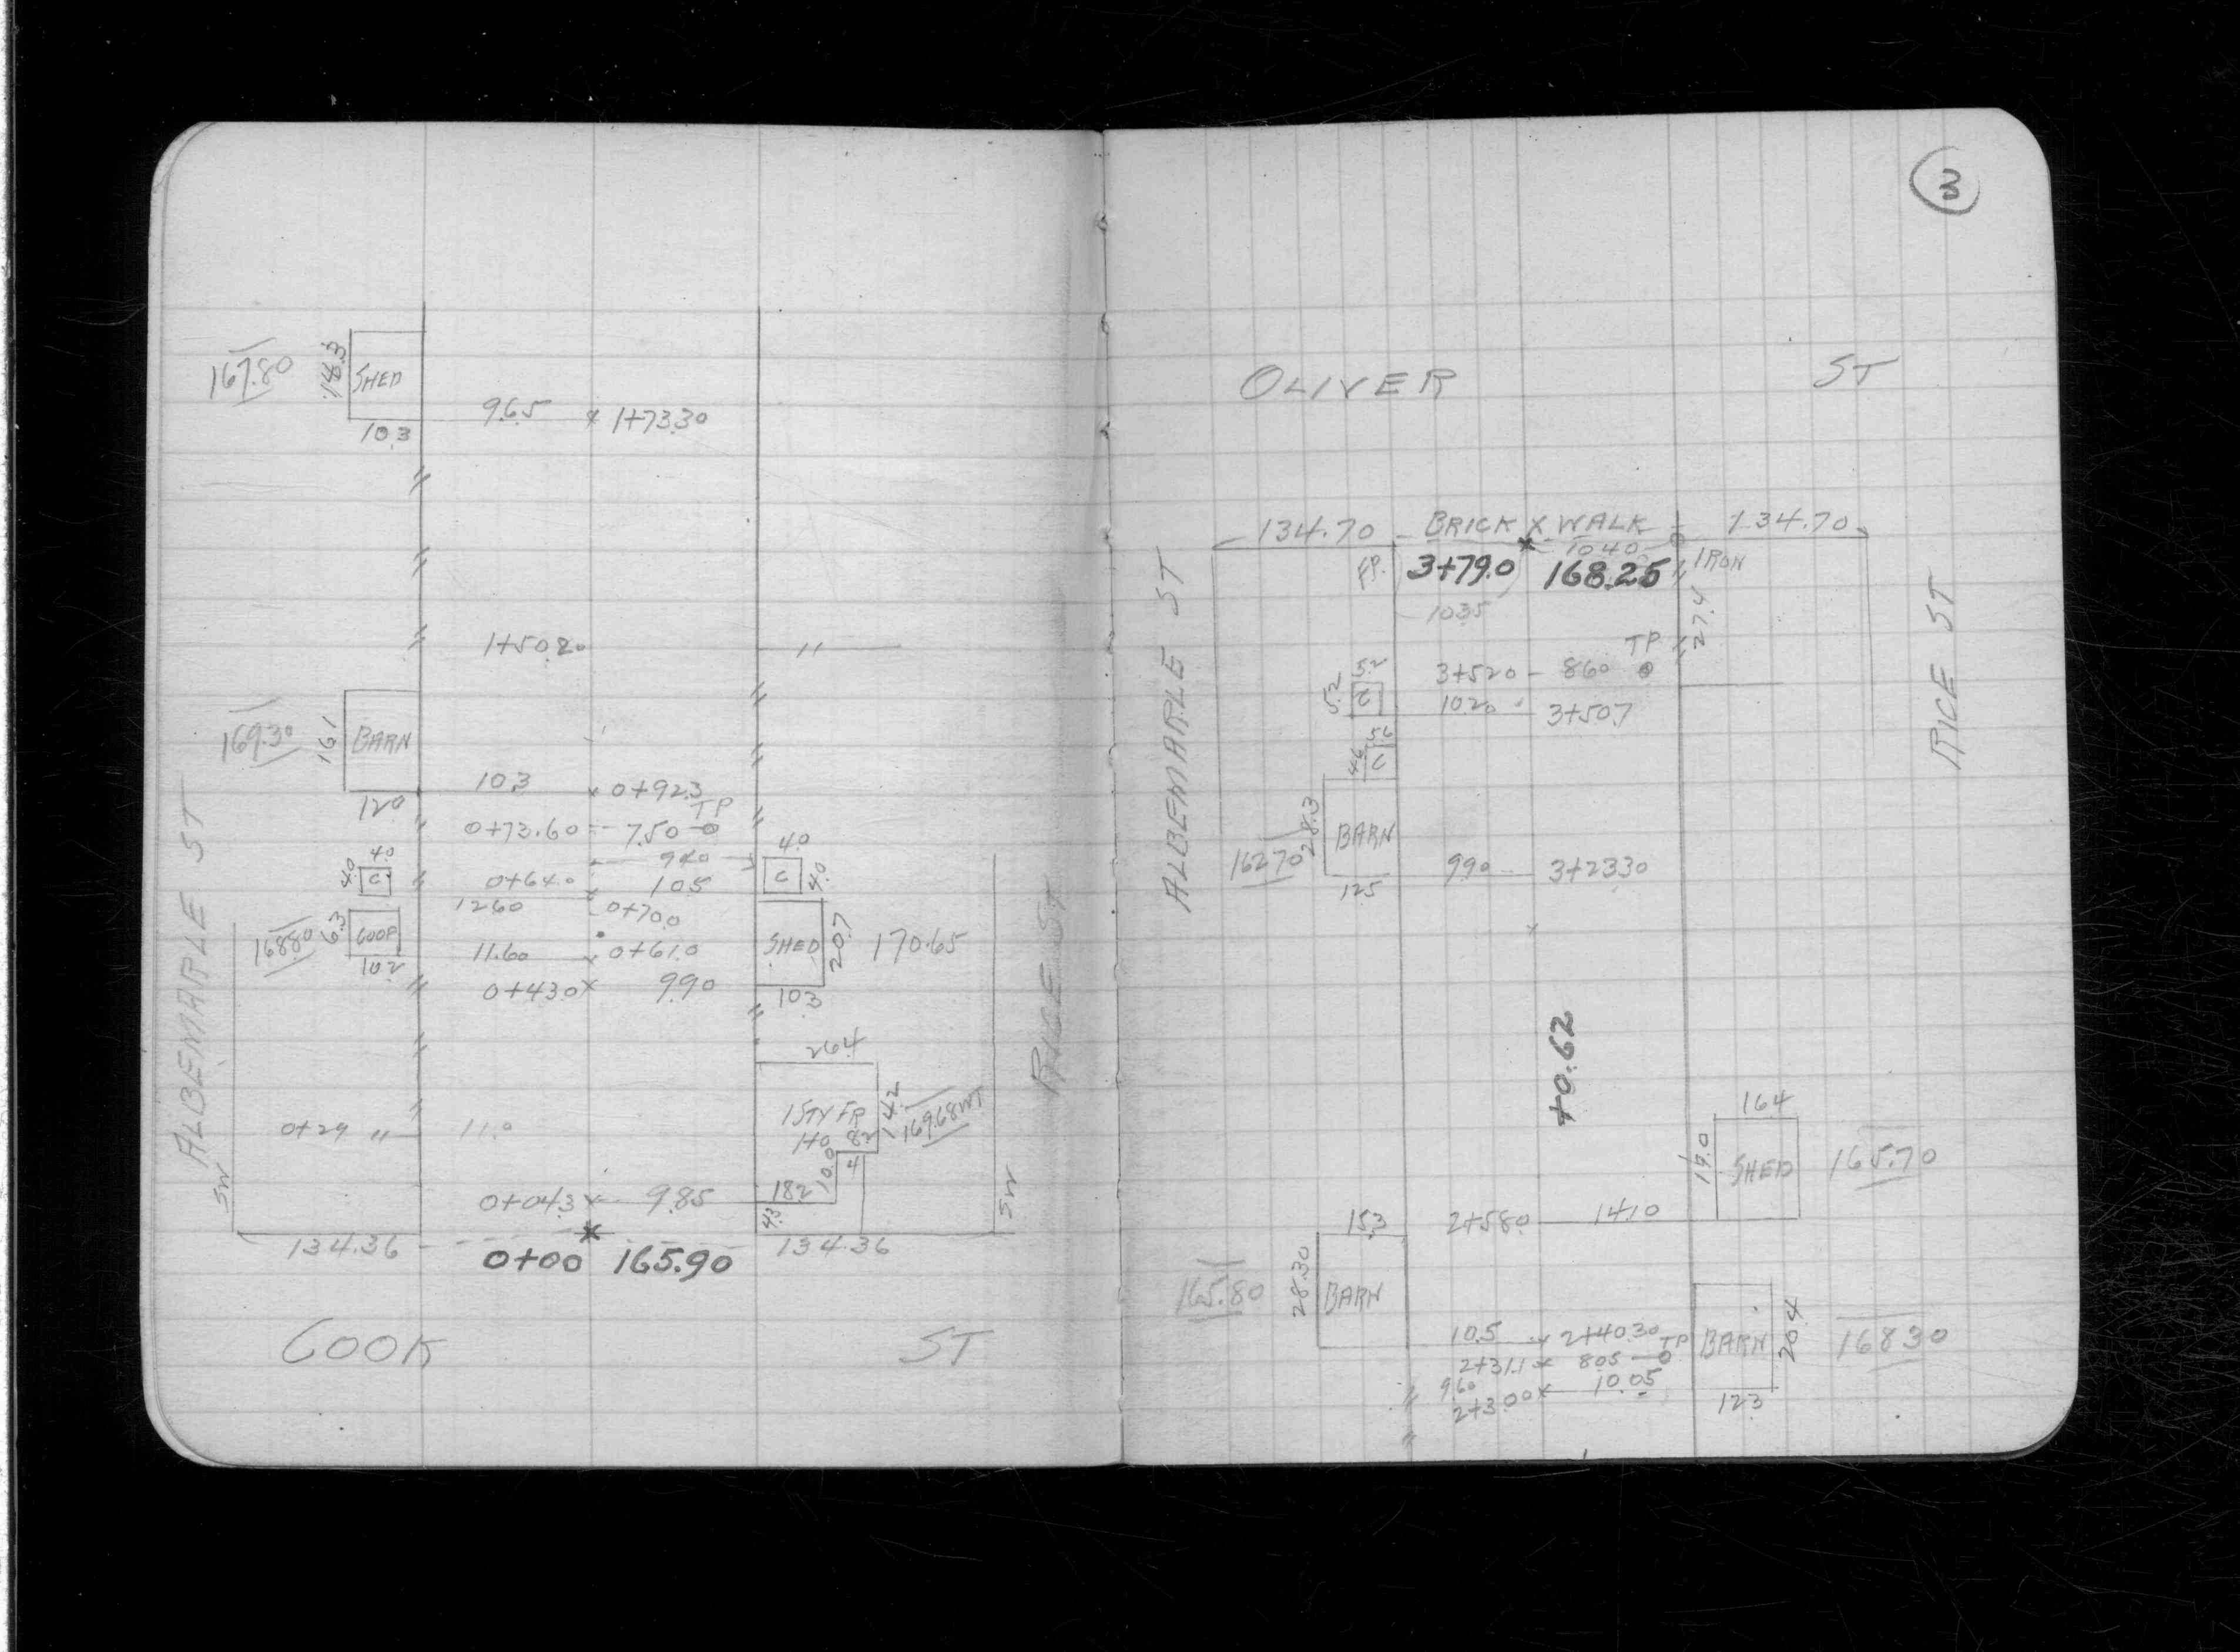 167.80
14.3
SHED
10.3
9.65 x 1+73.30
1+50.20
"
169.30
16.1
BARN
12.0
10.3 x 0+92.3
TP
0+73.60 - 7.50
4.0
4.0
C
9.40
4.0
C
4.0
0+64.0 10.5
12.60 0+70.0
168.80
6.3
COOP
10.2
11.60 0+61.0
SHED
20.7
170.65
10.3
0+43.0 x 9.90
26.4
1 STY FR
HO
8.2
14.2
169.68 WT
0+29 "
11.0
10.0
4
18.2
4.3
0+04.3 x 9.85
134.36
0+00 165.90
134.36
COOK ST
ALBEMARLE ST
SW
RICE ST
SW
3
OLIVER ST
134.70 BRICK X WALK 134.70
10.40
FP. 3+79.0 168.25
IRON
10.35
27.4
TP
5.2
5.2
C
3+52.0 - 8.60
10.20 3+50.7
5.6
4.6
C
28.3
BARN
162.70
12.5
9.90 3+23.30
ALBEMARLE ST
RICE ST
+0.62
16.4
19.0
SHED
165.70
15.3
2+58.0 14.10
165.80
28.30
BARN
10.5 x 2+40.30
TP
2+31.1 x 8.05
9.60
2+3.00 x 10.05
BARN
20.4
168.30
12.3